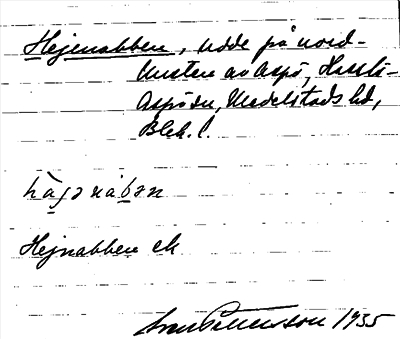 Hejenabben, udde på nord-
kusten av Aspö, Hasslö-
Aspö sn, Medelstads hd,
Blek. l.
hàjənábən
Hejnabben ek
Sven Pettersson 1935